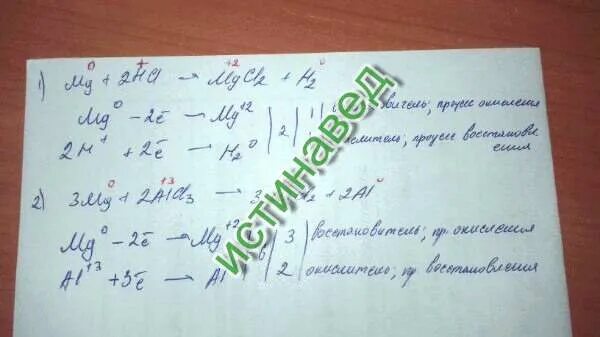 1) Mg⁰ + 2H⁺Cl → Mg⁺²Cl₂ + H₂⁰
Mg⁰ - 2ē → Mg⁺² | 2 | 1 | процесс окисления
2H⁺ + 2ē → H₂⁰ процесс восстановления
2) 3Mg⁰ + 2Al⁺³Cl₃ → 3 + 2Al⁰
Mg⁰ - 2ē → Mg⁺² | 6 | 3 | восстановитель; пр. окисления
Al⁺³ + 3ē → Al | 2 | окислитель; пр. восстановления
ИСТИНАВЕД